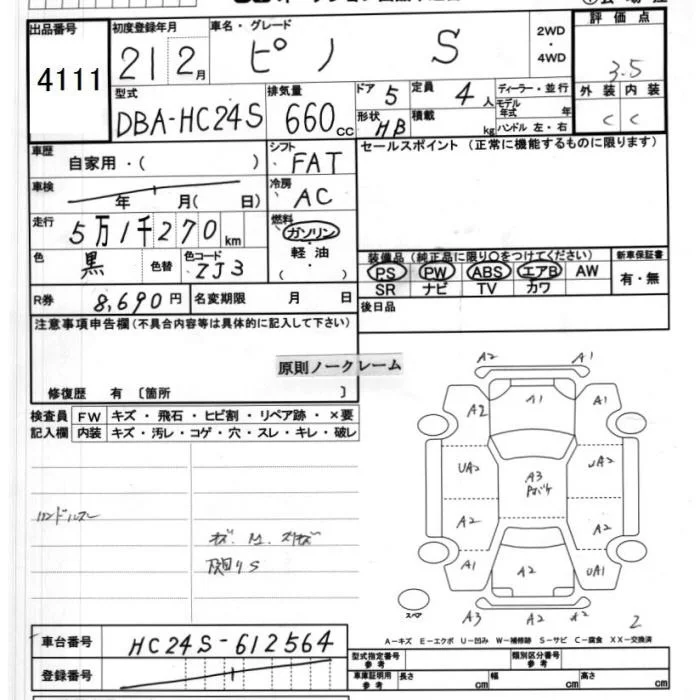 出品番号
4111
初度登録年月
21 2月
車名・グレード
ピノ S
2WD
・
4WD
評価点
3.5
型式
DBA-HC24S
排気量
660cc
ドア 5
定員 4人
形状 HB
積載 kg
ディーラー・並行
モデル年式 年
ハンドル 左・右
外装 内装
C C
車歴
自家用・( )
シフト
FAT
セールスポイント (正常に機能するものに限ります)
車検
年 月( 日)
冷房
AC
走行
5万1千270km
燃料
ガソリン
軽油
( )
色
黒
色替
色コード
ZJ3
装備品 (純正品に限り○をつけてください)
新車保証書
PS PW ABS エアB AW
有・無
SR ナビ TV カワ
R券 8,690円
名変期限 月 日
後日品
注意事項申告欄(不具合内容等は具体的に記入して下さい)
原則ノークレーム
修復歴 有 〔箇所 〕
検査員
記入欄
FW キズ・飛石・ヒビ割・リペア跡・×要
内装 キズ・汚レ・コゲ・穴・スレ・キレ・破レ
ハンドルスレ
A2 A1
A2 A1 A1
UA2 A3 UA2
A2 A2
A1 A2 UA1
スペア
A3 A2 A2 2
A-キズ E-エクボ U-凹み W-補修跡 S-サビ C-腐食 XX-交換済
車台番号
HC24S-612564
登録番号
型式指定番号
参考
類別区分番号
参考
車庫証明用
参考
長さ cm
幅 cm
高さ cm